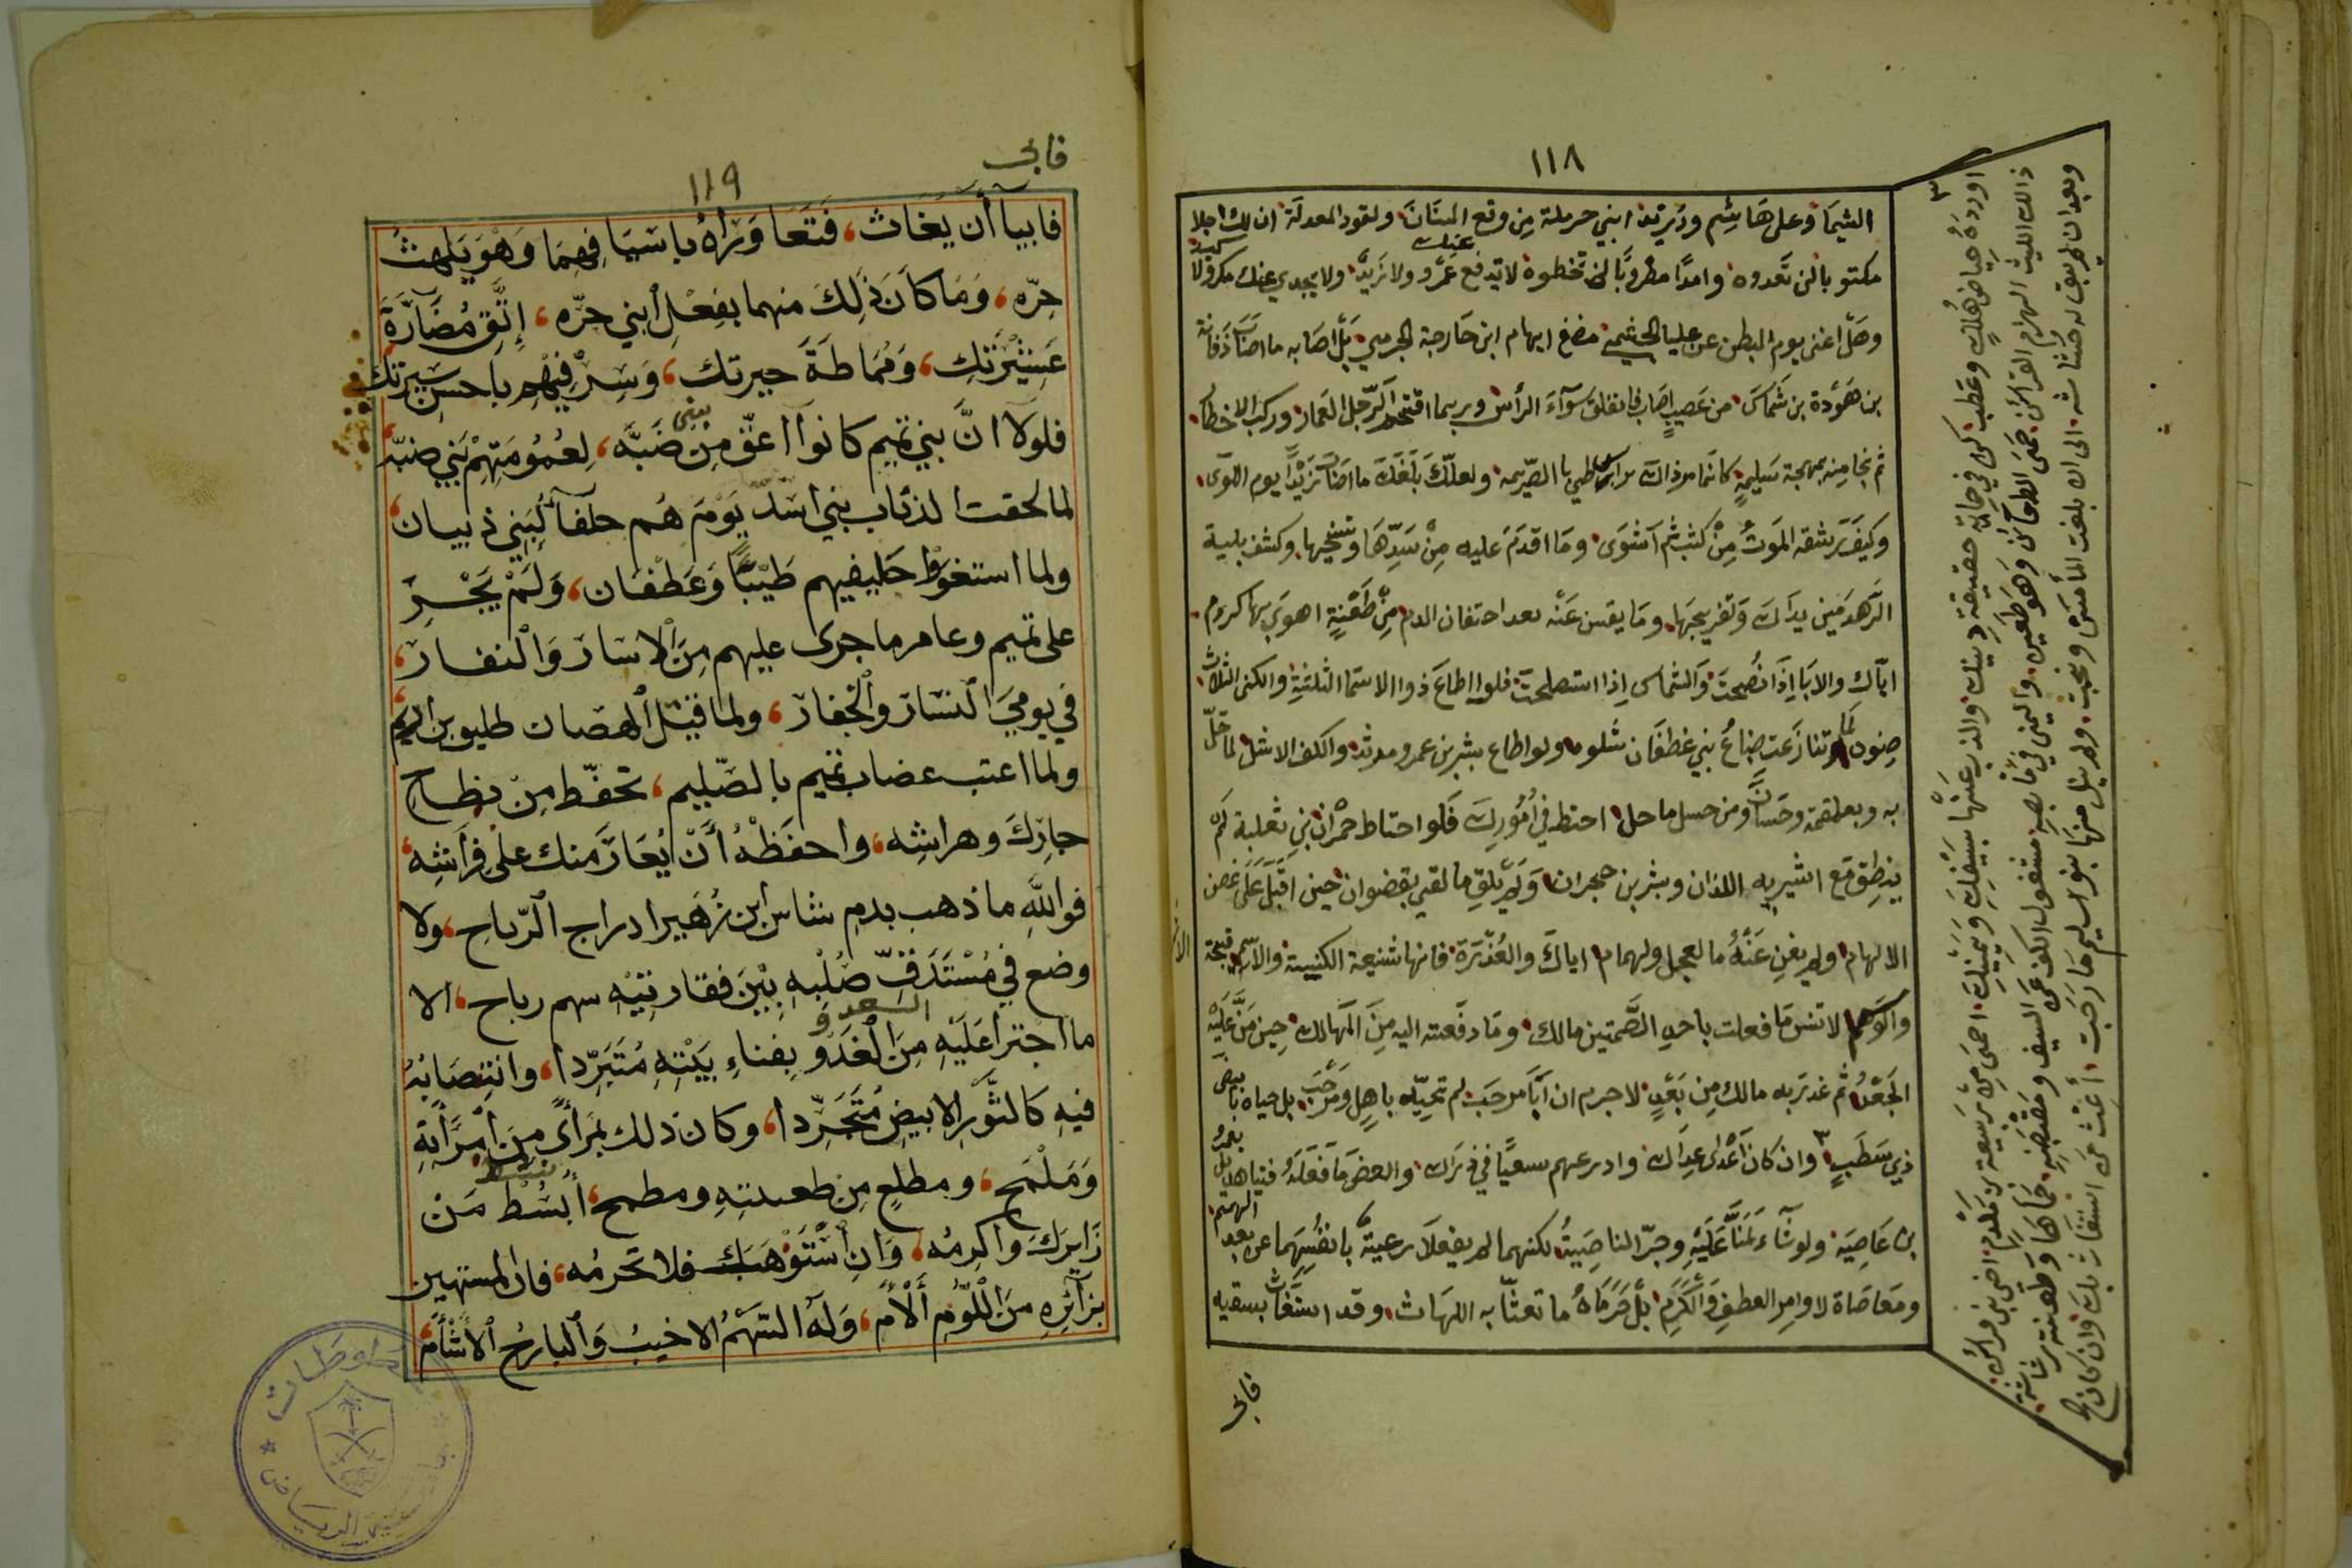 ١١٨
الشيما وعلى هاشم ودريد ابني حرملة من وقع السنان ولقود المعدلة ان لك اجلا
مكتوبا لن تعدوه وامدا مضروبا لن تخطوه لا يدفع عنك عمرو ولا زيد ولا يجدي عنك مكر ولا كيد
وهل اغنى يوم البطن عن عليا الجشمي مضغ ابهام ابن خارجة الجرمي بل اصابه ما اصاب ذفافة
بن هوذة بن شماس من عصيب اصاب فانفلق سوآء الرأس وربما اقتحم الرجل الغمار وركب الاخطار
ثم نجا منه بمهجة سليمة كانما مر ذاك ظبي بالصريمه ولعلك بلغك ما اصاب زيدا يوم اللوى
وكيف رشقه الموت من كثب ثم اشوى وما اقدم عليه من سدها وشخبها وكشف بلية
الزهدمين يداك وتفريجها وما يقس عنه بعد احتقان الدم من طعنة اهوى بها كردم
اياك والابا اذا نصحت والشماس اذا استصلحت فلو اطاع ذوا الاسما الثلثة والكنى الثلاث
صنوه لما تنازعت ضباع بني غطفان شلوه ولو اطاع بشر بن عمرو مرثد والكف الاشل لما حل
به وبعلقمة وحسان ومن حسل ما حل احتط في امورك فلو احتاط حمران بن ثعلبة لم
ينطق مع اشيريه اللذان وبشر بن حجران ولم يلق ما لقي بقضوان حين اقبل على غصن
الالهام ولم يغن عنه ما لعجل ولهمام اياك والغدرة فانها شنيعة الكنية والاسم قبيحة الاثر
والوسم لا تنس ما فعلت باحد الصمتين مالك وما دفعته اليه من المهالك حين من عليه
الجعد ثم غدر به مالك من بعد لا جرم ان ابا مرحب لم تحيه باهل ومرحب بل حياه بابيض
ذي شطب وان كان اعدى عداك وادرعهم سعيا في ذراك والعض ما فعله فتيا هذيل بعمرو
بن عاصيه ولو شاء لمنا عليه وجز الناصية لكنهما لم يفعلا رغبة بانفسهما عن بعد الهمم
ومعاصاة لاوامر العطف والكرم بل حرماه ما تعتا به اللهاث وقد استغاث بسقيه
فابى
اورده حياض هلك وعطب كن في حماية حقيقة دينك والذب عنها بسيفك ويمينك احمى من ربيعة بن مكدم اخي بني فراس
ذالك الليث الهزام الفراس حمى الظعائن وهو طعين واليمنى في ما بصره مشغول الكف عن السيف ومقبضه حماها وطعنته رشاشة
وبعد ان لم يبق له حشاشه الى ان بلغت المأمن ونجت ولم ينل منها بنو سليم ما رجت اغث من استغاث بك وان كان ع
فابى
١١٩
فابيا أن يغاث، فتعا وراه ياسيا فيهما وهو يلهث
حره، وما كان ذلك منهما بفعل ابني حره، إتق مضارة
عشيرتك، ومماطة جيرتك، وسر فيهم باحسن سيرتك
فلولا ان بني تميم كانوا اعق من بني ضبه، لعمومتهم بني ضبه،
لما لحقت الذئاب بني اسد يوم هم حلفآ لبني ذبيان،
ولما استغووا حليفيهم طيبا وغطفان، ولم يجر
على تميم وعامر ما جرى عليهم من الاسار والنفار،
في يومي النسار والجفار، ولما قتل الهصان طليق بن ازيم
ولما اعتب غضاب تميم بالصليم، تحفظ من نطاح
جارك وهراشه، واحفظه أن يعار منك على فراشه،
فوالله ما ذهب بدم شاس ابن زهير ادراج الرياح، ولا
وضع في مستدق صلبه بين فقارتيه سهم رباح، الا
ما اجترا عليه من الغدو بفناء بيته متبردا، وانتصابه
فيه كالثور الابيض متجردا، وكان ذلك بمرأى من امرأته
وملمح، ومطلع من ظعينته ومطمح، أبسط من
زايرك واكرمه، وان استوهبك فلا تحرمه، فان المستهين
بزآئره من اللوم ألأم، وله السهم الاخيب والبارح الأشأم